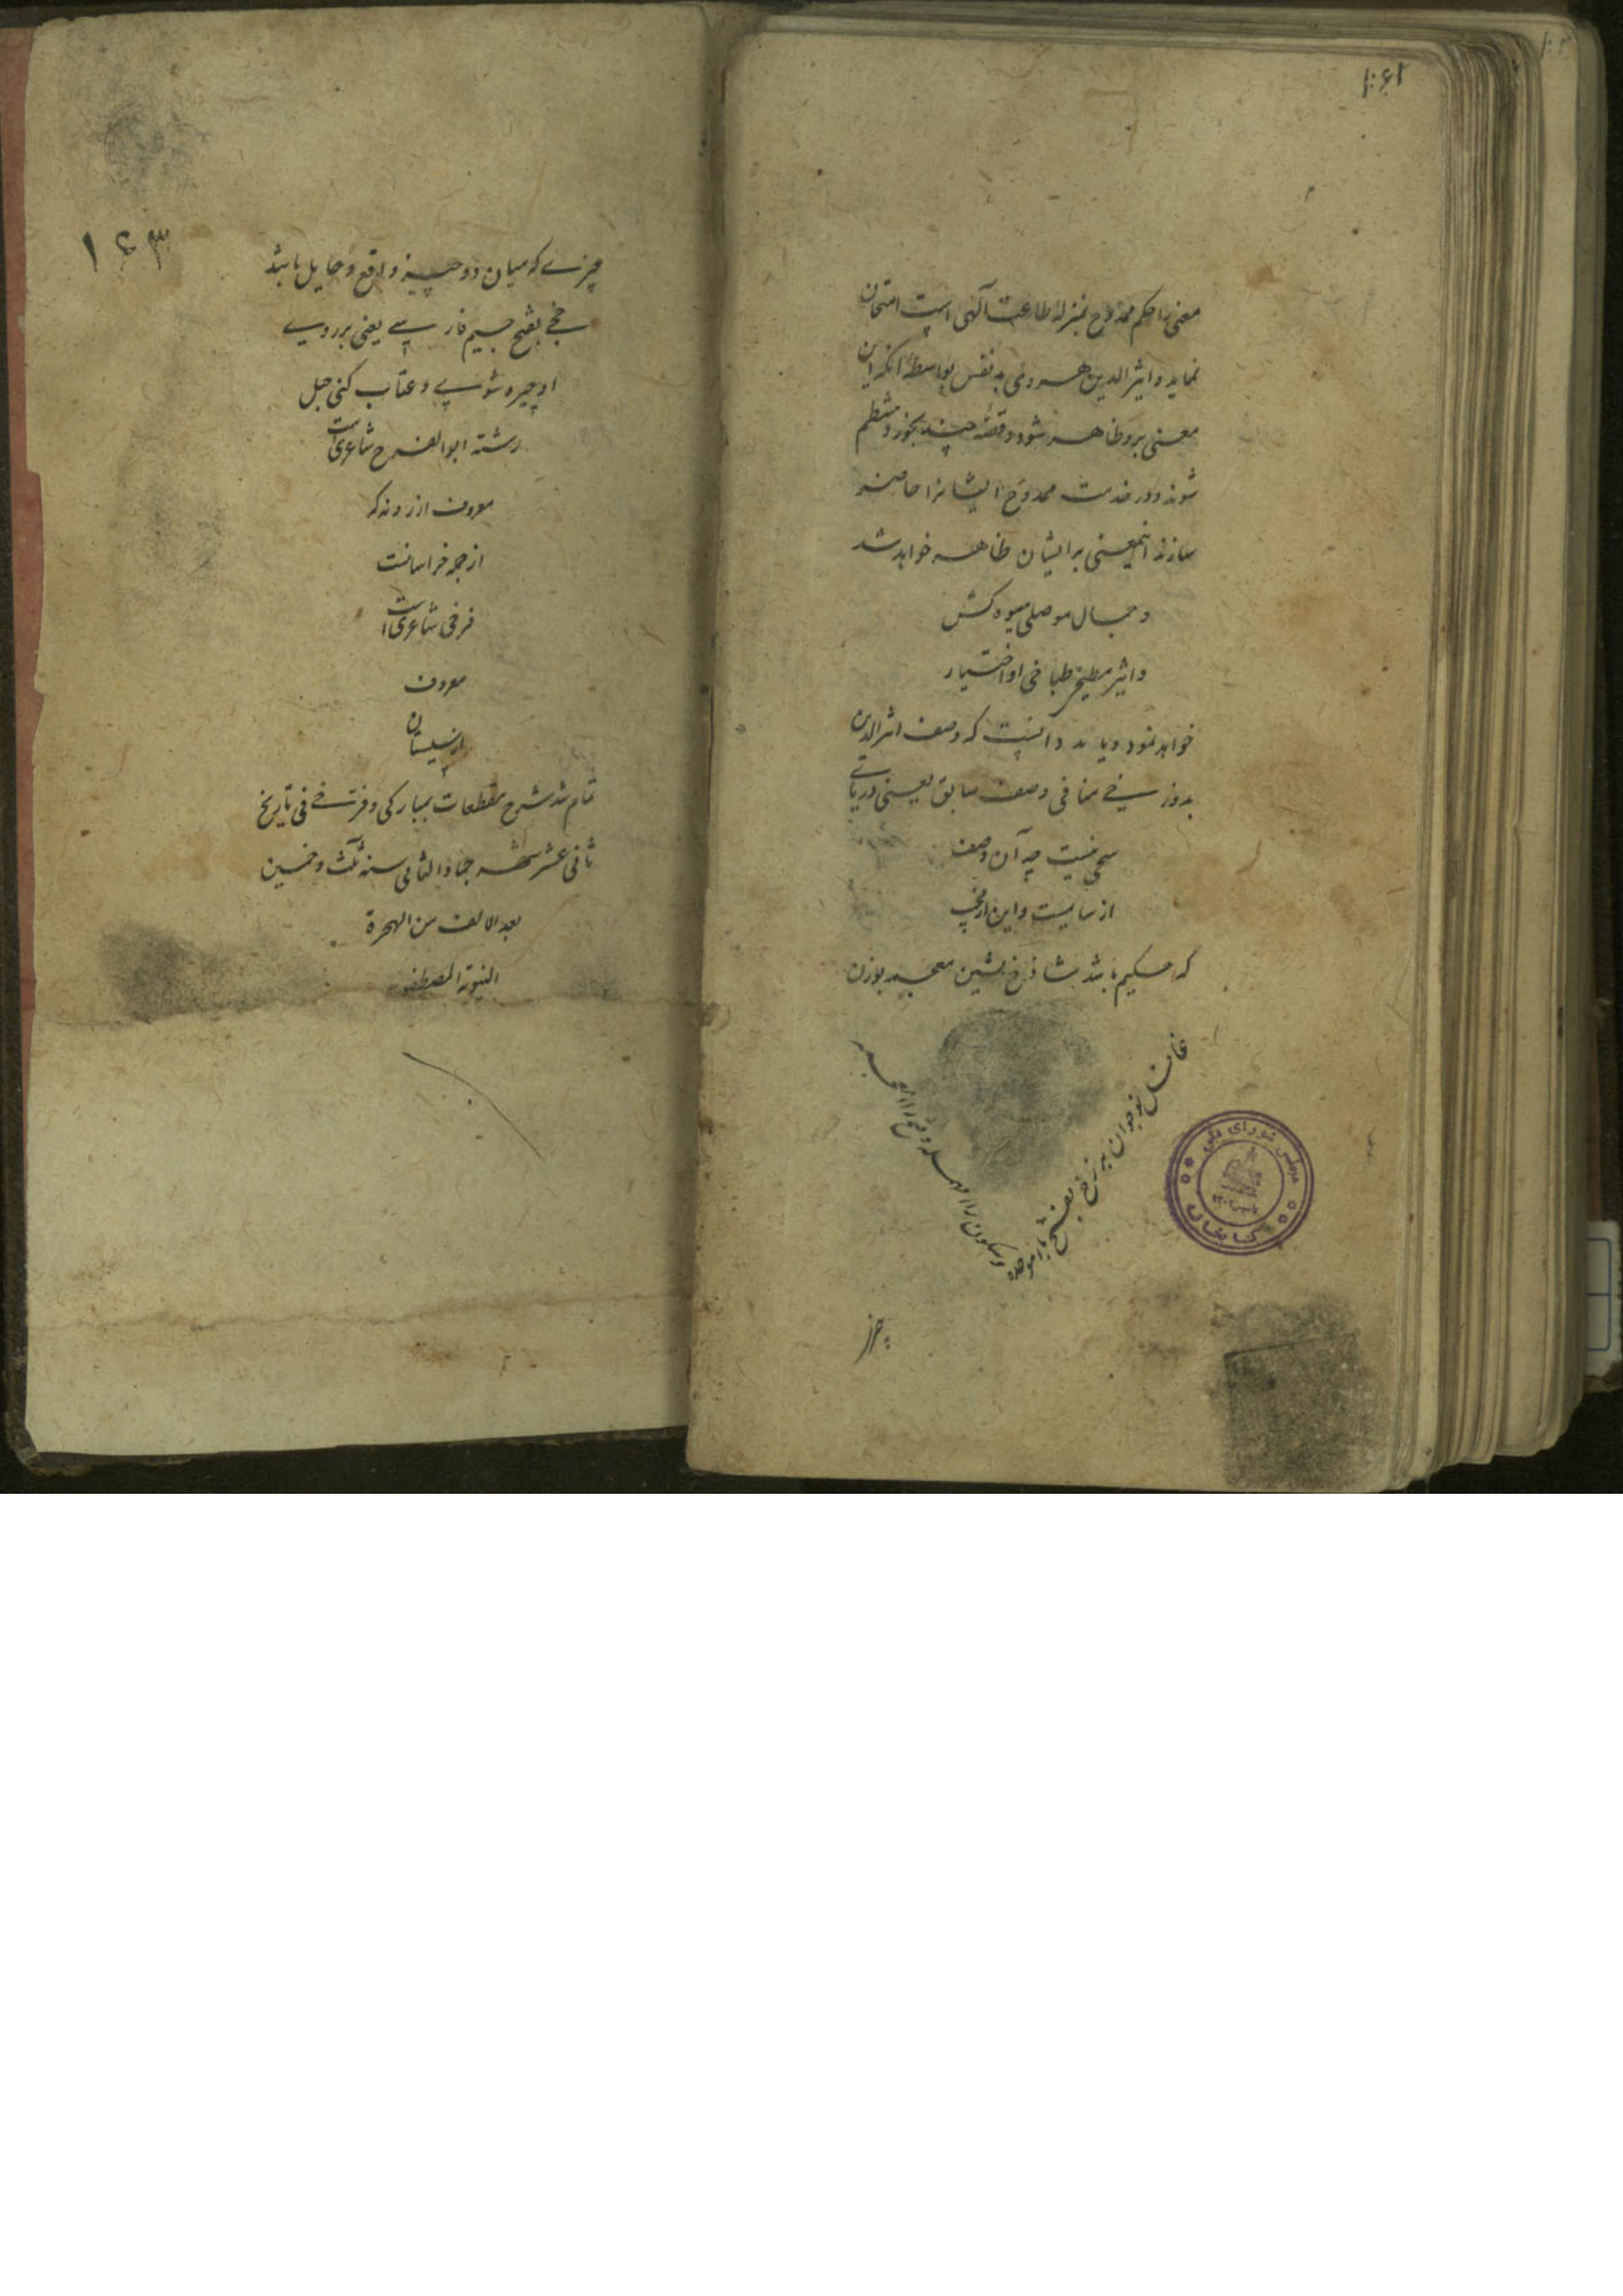 معنی را حکم ممدوح بمنزله طاعت آلهی است امتحان
نماید و اثیر الدین هروی بد نفس بواسطه آنکه این
معنی برو ظاهر شود و قصه چند بخورد منتظم
شوند و در خدمت ممدوح ایشانرا حاضر
سازند اینمعنی بر ایشان ظاهر خواهد شد
و جمال موصلی میوه کش
و اثیر مطبخی طباخی او اختیار
خواهد نمود و باید دانست که وصف اثیر الدین
بدوزخی منافی وصف سابق یعنی دریائی
سخی نیست چه آن وصف
از سابست و این از
که حکیم باشد شاذخ بشین معجمه بوزن
غافل نوجوان برزخ بفتح باء موحده
و سکون راء مهمله و فتح زاء معجمه
چیز
۱۶۳
چیزے که میان دو چیز واقع و حایل باشد
چخے بفتح جیم فارسے یعنی بر روے
او چیره شوے و عتاب کنی جبل
رشته ابو الفرح شاعری است
معروف از رونه که
از جمله خراسانست
فرخی شاعری است
معروف
از سیستان
تمام شد شرح مقطعات بمبارکی و فرخے فی تاریخ
ثانی عشر شهر جماد الثانی سنه ثلث و خمسین
بعد الالف من الهجرة
النبویة المصطفویه
مجلس شورای ملی
کتابخانه